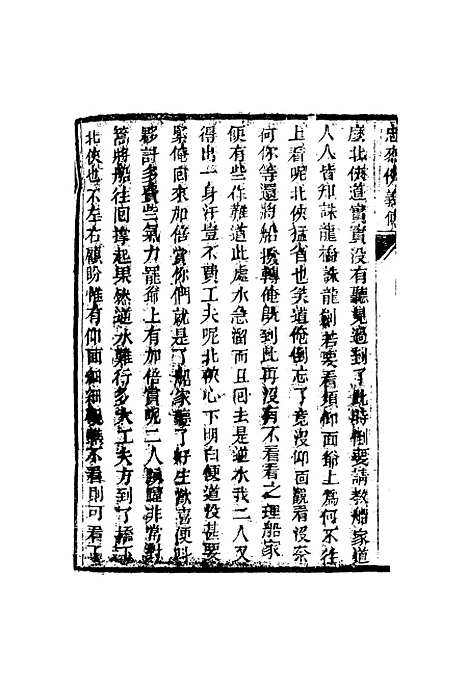 忠烈俠義傳
麽北俠道實實沒有聽見過到了此時倒要請教船家道
人人皆知誅龍橋誅龍劍若要看須仰面爺上為何不往
上看呢北俠猛省也笑道俺倒忘了竟沒仰面觀看沒奈
何你等還將船撥轉俺旣到此再沒有不看看之理船家
便有些作難道此處水急溜而且回去是逆水我二人又
得出一身汗豈不費工夫呢北俠心下明白便道沒甚要
緊俺回來加倍賞你們就是了船家聽了好生歡喜便叫
夥計多費些氣力罷爺上有加倍賞呢二人踴躍非常對
篙將船往回撐起果然逆水難行多大工夫方到了橋下
北俠也不左右顧盼惟有仰面細細觀瞧不看則可看了